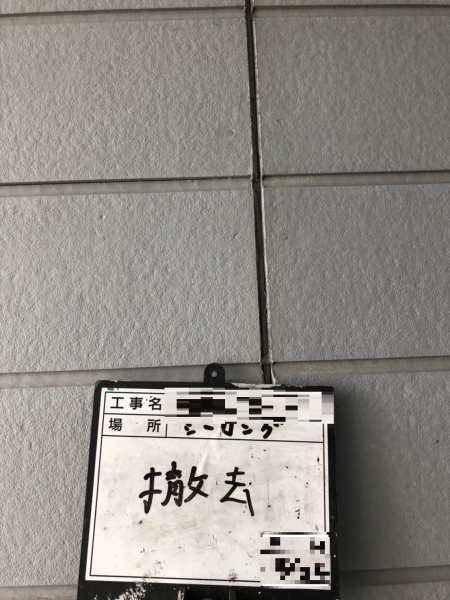 工事名
場所 シーリング
撤去